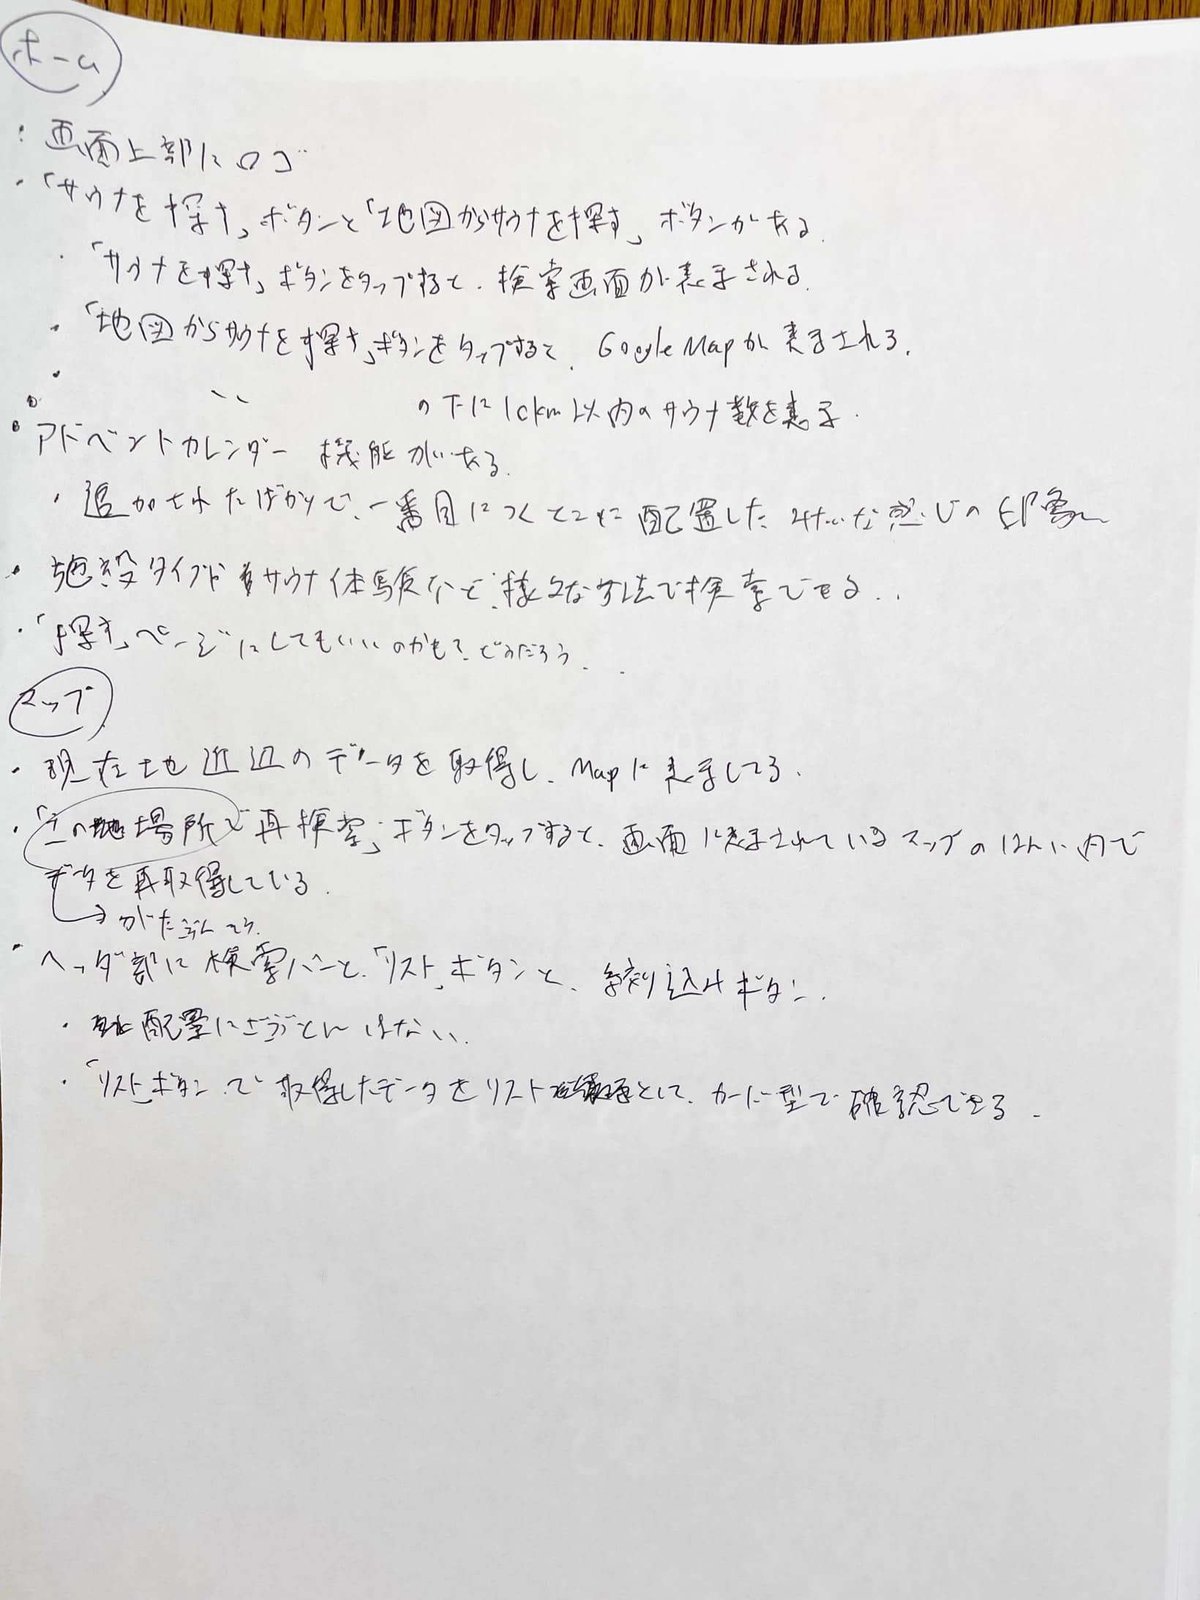 ホーム
・画面上部にロゴ
・「サウナを探す」ボタンと「地図からサウナを探す」ボタンがある
・「サウナを探す」ボタンをタップすると、検索画面が表示される
・「地図からサウナを探す」ボタンをタップすると、Google Mapが表示される。
・ 〃 の下に1ckm以内のサウナ数を表示
・アドベントカレンダー機能がある
・追加されたばかりで、一番目につくとこに配置したみたいな感じの印象
・施設タイプやサウナ体験など、様々な方法で検索できる。
・「探す」ページにしてもいいのかも?どうだろう。
マップ
・現在地近辺のデータを取得し、Mapに表示してる。
・「この場所で再検索」ボタンをタップすると、画面に表示されているマップのはんい内で
データを再取得している。
→
・ヘッダ部に検索バーと、「リスト」ボタンと、絞り込みボタン。
・配置に はない。
・「リスト」ボタンで取得したデータをリスト として、カード型で確認できる。